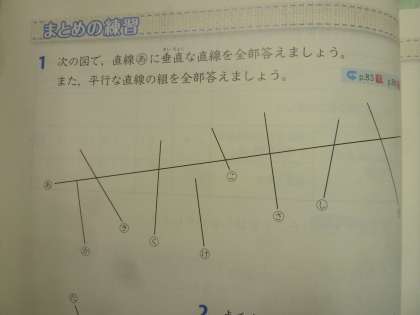 まとめの練習
1 次の図で，直線あに垂直な直線を全部答えましょう。
また，平行な直線の組を全部答えましょう。
p.83
あ
か
き
く
け
こ
さ
し
2